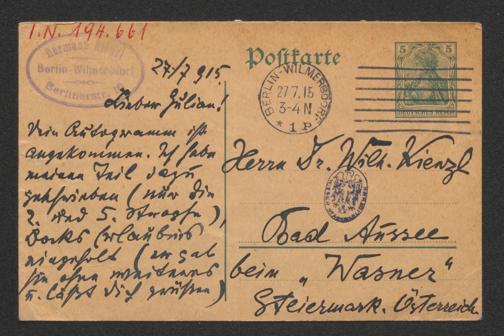 I.N. 194.661
Hermann Kienzl
Berlin-Wilmersdorf
Berlinerstr.
Postkarte
5
BERLIN-WILMERSDORF
27.7.15
3-4 N
* 1 P.
27/7 915.
Lieber Julian!
Dein Autogramm ist
angekommen. Ich habe
meinen Teil dazu
geschrieben (nur die
2. und 5. Strophe),
Bocks Erlaubnis
eingeholt (er gab
sie ohne weiteres
u. läßt dich grüßen)
Herrn Dr. Wilh. Kienzl
Bad Aussee
beim „Wasner“
Steiermark. Österreich